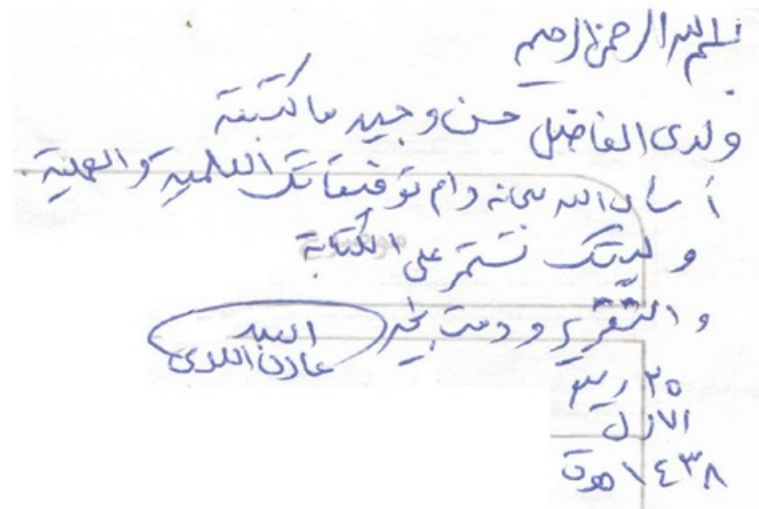 بسم الله الرحمن الرحيم
ولدى الفاضل حسن وجيد ما كتبته
أسأل الله سبحانه دوام توفيقاتك العلمية والعملية
وليتك تستمر على الكتابة
والتقرير ودمت بخير
السيد
عادل العلوي
٢٥ ربيع
الاول
١٤٣٨ هـ ق